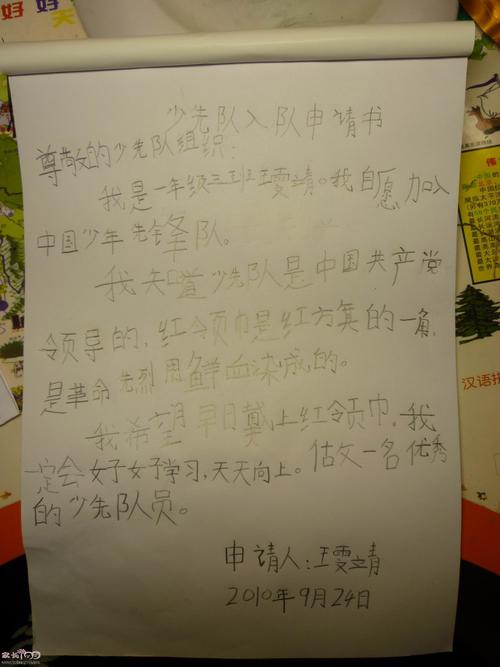 少先队入队申请书
尊敬的少先队组织：
我是一年级三班王雯靖。我自愿加入
中国少年先锋队。
我知道少先队是中国共产党
领导的，红领巾是红方箕的一角，
是革命先烈用鲜血染成的。
我希望早日戴上红领巾，我
一定会好好学习，天天向上。估文一名优秀
的少先队员。
申请人：王雯靖
2010年9月24日
汉语拼